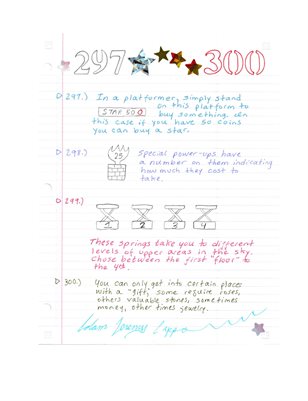 297 300
297.) In a platformer, simply stand
on this platform to
STAR 50¢
buy something. In
this case if you have 50 coins
you can buy a star.
298.) Special power-ups have
a number on them indicating
how much they cost to
take.
25
299.)
1 2 3 4
These springs take you to different
levels of upper areas in the sky.
Chose between the first "floor" to
the 4th.
300.) You can only get into certain places
with a "gift," some require roses,
others valuable stones, sometimes
money, other times jewelry.